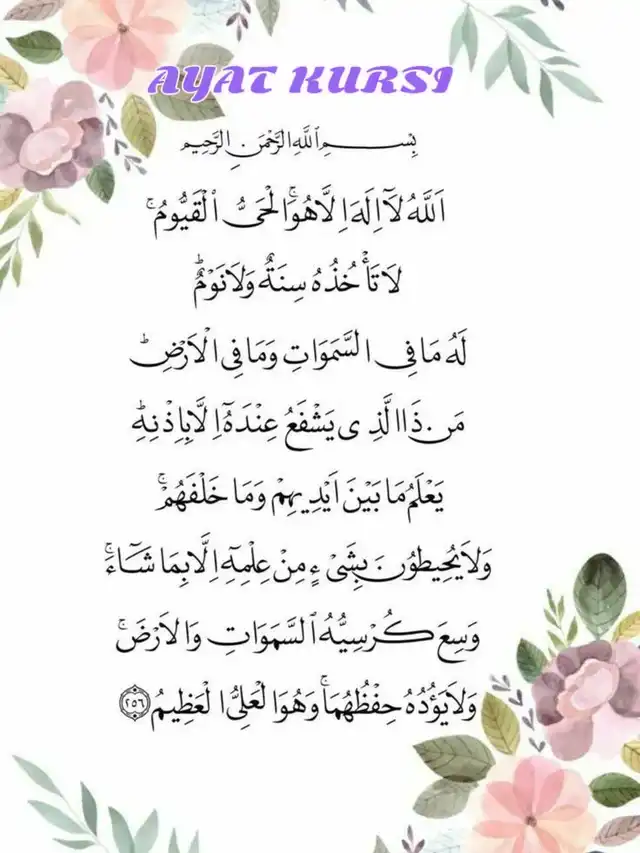 AYAT KURSI
بِسْمِ ٱللَّهِ الرَّحْمَنِ الرَّحِيمِ
اَللَّهُ لَآ اِلَهَ اِلَّا هُوَۚ الْحَىُّ ٱلْقَيُّومُۚ
لَا تَأْخُذُهُ سِنَةٌ وَلَا نَوْمٌؕ
لَهُ مَا فِي السَّمَوَاتِ وَمَا فِي الْاَرْضِؕ
مَن ذَا الَّذِى يَشْفَعُ عِنْدَهُٓ اِلَّا بِاِذْنِهِؕ
يَعْلَمُ مَا بَيْنَ اَيْدِيهِمْ وَمَا خَلْفَهُمْۚ
وَلَا يُحِيطُونَ بِشَىْءٍ مِنْ عِلْمِهِٓ اِلَّا بِمَا شَآءَۚ
وَسِعَ كُرْسِيُّهُ ٱلسَّمَوَاتِ وَالْاَرْضَۚ
وَلَا يَؤُدُهُ حِفْظُهُمَاۚ وَهُوَ الْعَلِىُّ الْعَظِيمُ ﴿٢٥٦﴾